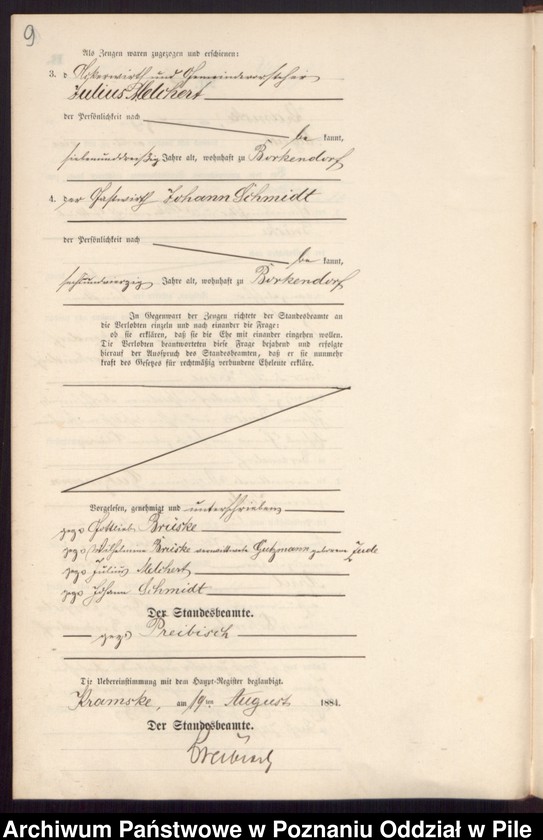 9
Als Zeugen waren zugezogen und erschienen:
3. d Ackerwirth und Gemeindevorsteher
Julius Melchert
der Persönlichkeit nach
be kannt,
siebenunddreißig Jahre alt, wohnhaft zu Borkendorf
4. der Gastwirth Johann Schmidt
der Persönlichkeit nach
be kannt,
sechsundvierzig Jahre alt, wohnhaft zu Borkendorf
In Gegenwart der Zeugen richtete der Standesbeamte an
die Verlobten einzeln und nach einander die Frage:
ob sie erklären, daß sie die Ehe mit einander eingehen wollen.
Die Verlobten beantworteten diese Frage bejahend und erfolgte
hierauf der Ausspruch des Standesbeamten, daß er sie nunmehr
kraft des Gesetzes für rechtmäßig verbundene Eheleute erkläre.
Vorgelesen, genehmigt und unterschrieben
gez. Gottlieb Brüske
gez. Wilhelmine Brüske verwittwete Gutzmann geborene Zude
gez. Julius Melchert
gez. Johann Schmidt
Der Standesbeamte.
gez. Preibisch
Die Uebereinstimmung mit dem Haupt-Register beglaubigt.
Kramske, am 19ten August 1884.
Der Standesbeamte.
Preibisch
Archiwum Państwowe w Poznaniu Oddział w Pile